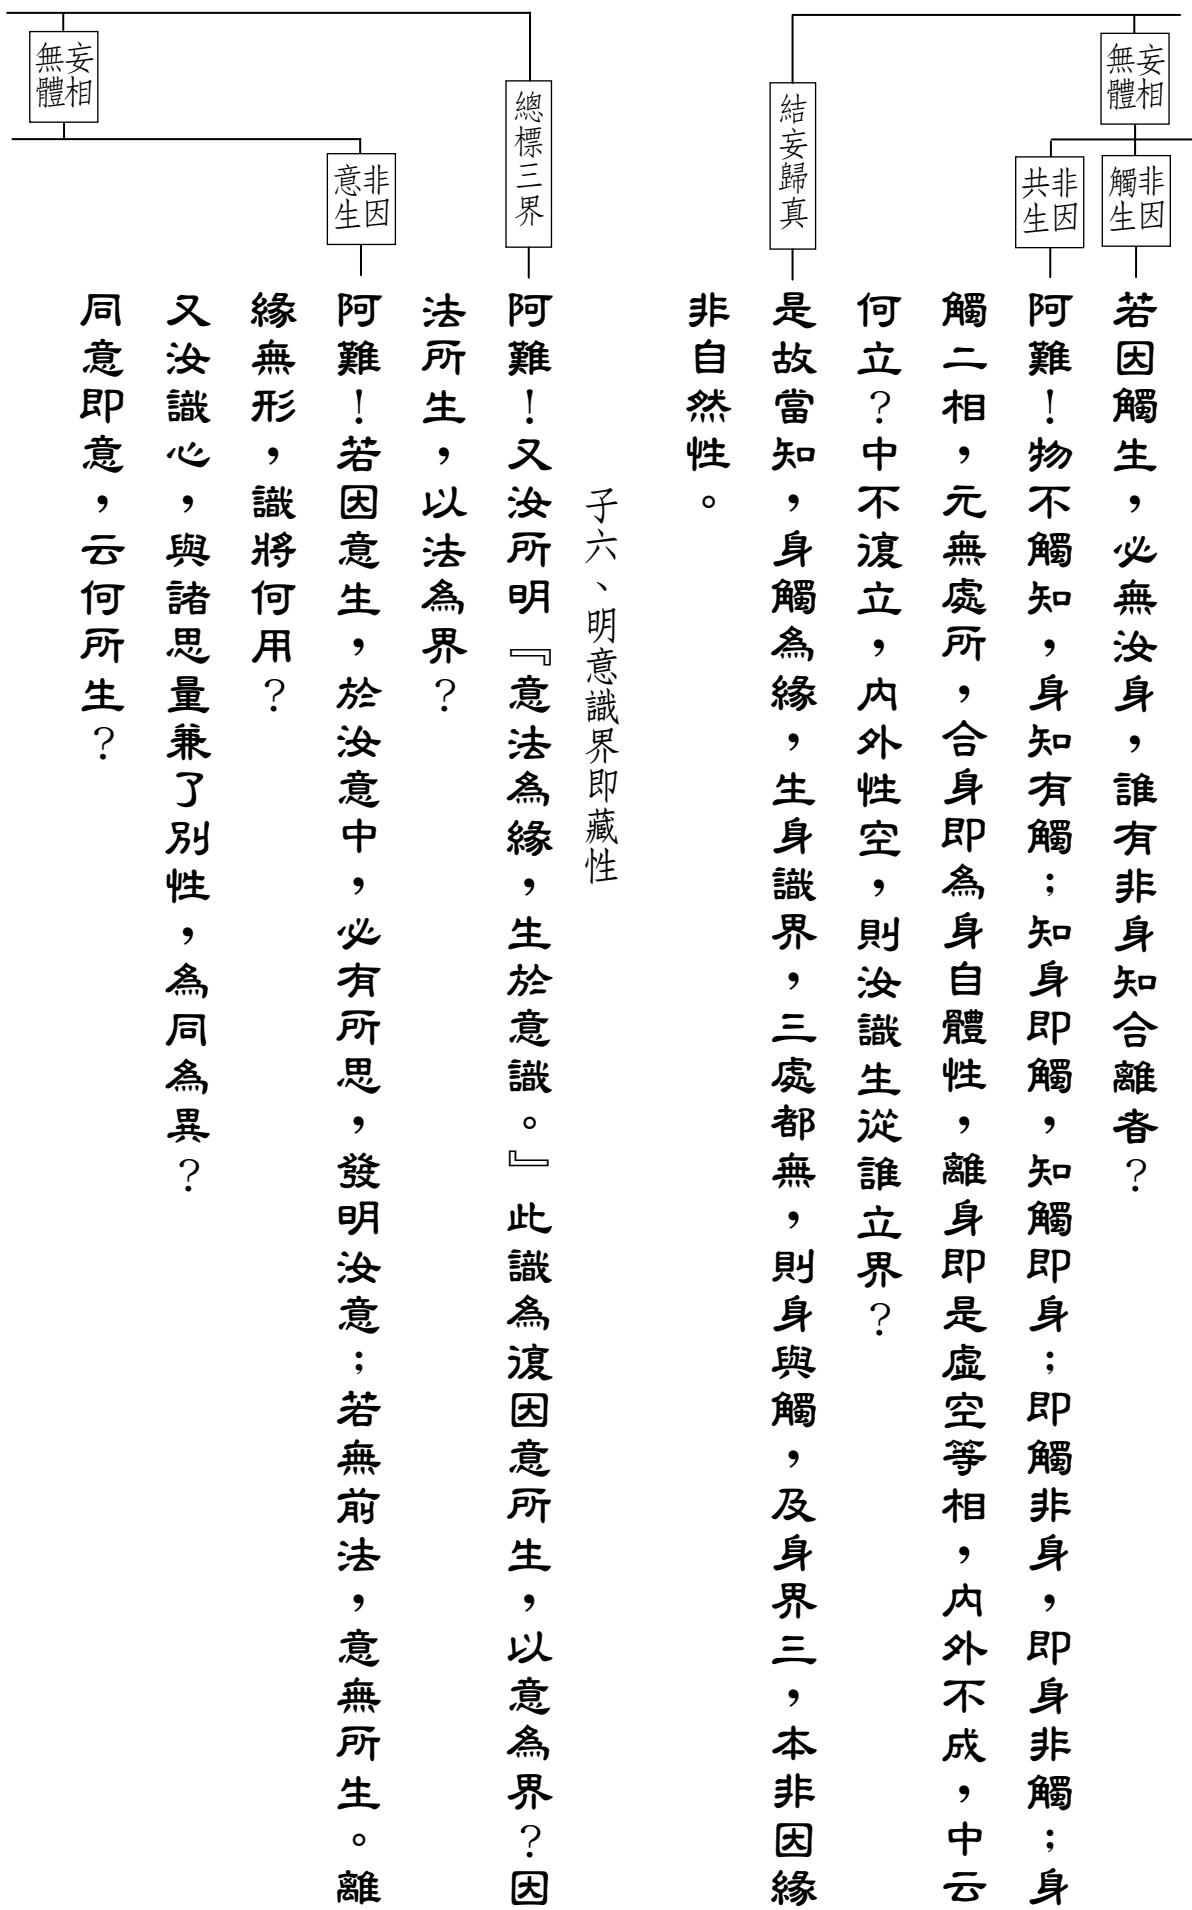 妄相
無體
非因
觸生
若因觸生，必無汝身，誰有非身知合離者？
非因
共生
阿難！物不觸知，身知有觸；知身即觸，知觸即身；即觸非身，即身非觸；身
觸二相，元無處所，合身即為身自體性，離身即是虛空等相，內外不成，中云
何立？中不復立，內外性空，則汝識生從誰立界？
結妄歸真
是故當知，身觸為緣，生身識界，三處都無，則身與觸，及身界三，本非因緣
非自然性。
子六、明意識界即藏性
總標三界
阿難！又汝所明『意法為緣，生於意識。』此識為復因意所生，以意為界？因
法所生，以法為界？
妄相
無體
非因
意生
阿難！若因意生，於汝意中，必有所思，發明汝意；若無前法，意無所生。離
緣無形，識將何用？
又汝識心，與諸思量兼了別性，為同為異？
同意即意，云何所生？